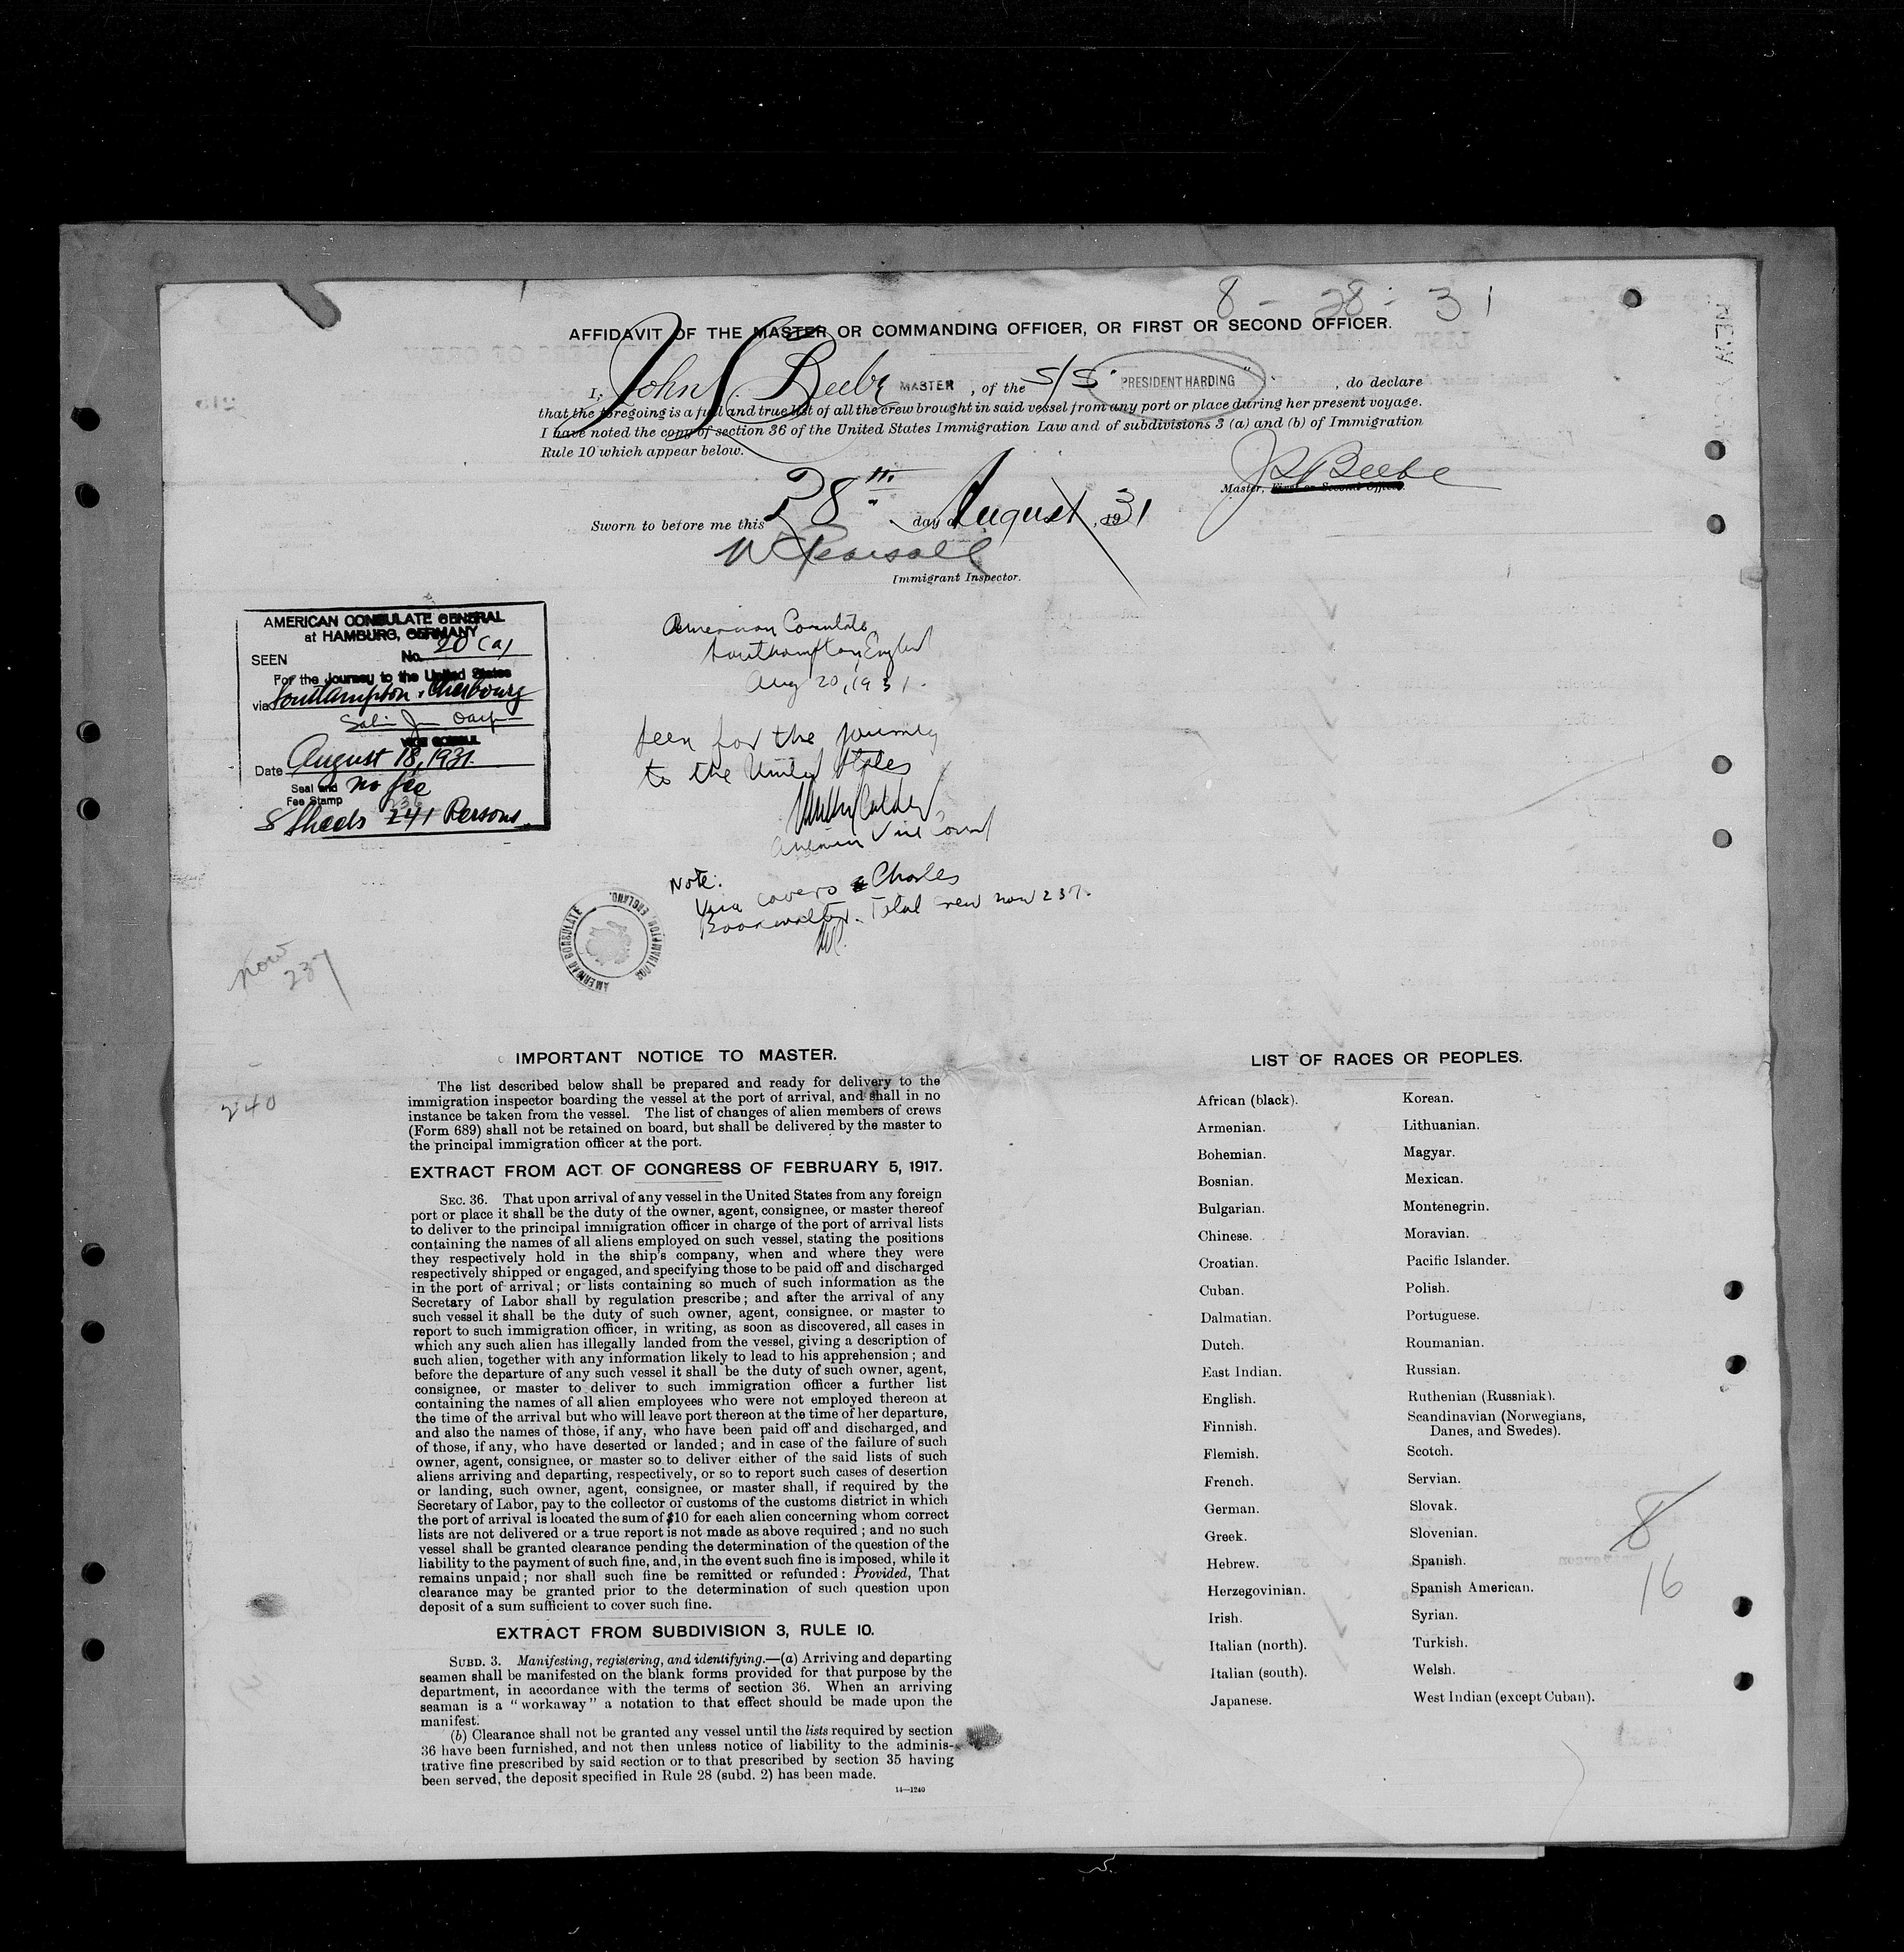 8 - 28 - 31
AFFIDAVIT OF THE MASTER OR COMMANDING OFFICER, OR FIRST OR SECOND OFFICER.
I, John S. Beebe MASTER, of the S/S "PRESIDENT HARDING", do declare
that the foregoing is a full and true list of all the crew brought in said vessel from any port or place during her present voyage.
I have noted the copy of section 36 of the United States Immigration Law and of subdivisions 3 (a) and (b) of Immigration
Rule 10 which appear below.
J S Beebe
Master, First or Second Officer.
Sworn to before me this 28th day of August, 1931
W Pearsall
Immigrant Inspector.
AMERICAN CONSULATE GENERAL
at HAMBURG, GERMANY
SEEN No. 20 (a)
For the Journey to the United States
via Southampton, Cherbourg
VICE CONSUL
Date August 18, 1931
Seal and
Fee Stamp no fee
236
8 Sheets 241 Persons
American Consulate
Southampton, England
Aug 20, 1931.
Seen for the journey
to the United States
American Vice Consul
Note:
Visa covers Charles
Bookwalter. Total crew now 237.
AMERICAN CONSULATE
SOUTHAMPTON, ENGLAND.
now
237
240
IMPORTANT NOTICE TO MASTER.
The list described below shall be prepared and ready for delivery to the
immigration inspector boarding the vessel at the port of arrival, and shall in no
instance be taken from the vessel. The list of changes of alien members of crews
(Form 689) shall not be retained on board, but shall be delivered by the master to
the principal immigration officer at the port.
EXTRACT FROM ACT OF CONGRESS OF FEBRUARY 5, 1917.
SEC. 36. That upon arrival of any vessel in the United States from any foreign
port or place it shall be the duty of the owner, agent, consignee, or master thereof
to deliver to the principal immigration officer in charge of the port of arrival lists
containing the names of all aliens employed on such vessel, stating the positions
they respectively hold in the ship's company, when and where they were
respectively shipped or engaged, and specifying those to be paid off and discharged
in the port of arrival; or lists containing so much of such information as the
Secretary of Labor shall by regulation prescribe; and after the arrival of any
such vessel it shall be the duty of such owner, agent, consignee, or master to
report to such immigration officer, in writing, as soon as discovered, all cases in
which any such alien has illegally landed from the vessel, giving a description of
such alien, together with any information likely to lead to his apprehension; and
before the departure of any such vessel it shall be the duty of such owner, agent,
consignee, or master to deliver to such immigration officer a further list
containing the names of all alien employees who were not employed thereon at
the time of the arrival but who will leave port thereon at the time of her departure,
and also the names of those, if any, who have been paid off and discharged, and
of those, if any, who have deserted or landed; and in case of the failure of such
owner, agent, consignee, or master so to deliver either of the said lists of such
aliens arriving and departing, respectively, or so to report such cases of desertion
or landing, such owner, agent, consignee, or master shall, if required by the
Secretary of Labor, pay to the collector of customs of the customs district in which
the port of arrival is located the sum of $10 for each alien concerning whom correct
lists are not delivered or a true report is not made as above required; and no such
vessel shall be granted clearance pending the determination of the question of the
liability to the payment of such fine, and, in the event such fine is imposed, while it
remains unpaid; nor shall such fine be remitted or refunded: Provided, That
clearance may be granted prior to the determination of such question upon
deposit of a sum sufficient to cover such fine.
EXTRACT FROM SUBDIVISION 3, RULE 10.
SUBD. 3. Manifesting, registering, and identifying.—(a) Arriving and departing
seamen shall be manifested on the blank forms provided for that purpose by the
department, in accordance with the terms of section 36. When an arriving
seaman is a "workaway" a notation to that effect should be made upon the
manifest.
(b) Clearance shall not be granted any vessel until the lists required by section
36 have been furnished, and not then unless notice of liability to the adminis-
trative fine prescribed by said section or to that prescribed by section 35 having
been served, the deposit specified in Rule 28 (subd. 2) has been made.
14—1240
LIST OF RACES OR PEOPLES.
African (black).
Armenian.
Bohemian.
Bosnian.
Bulgarian.
Chinese.
Croatian.
Cuban.
Dalmatian.
Dutch.
East Indian.
English.
Finnish.
Flemish.
French.
German.
Greek.
Hebrew.
Herzegovinian.
Irish.
Italian (north).
Italian (south).
Japanese.
Korean.
Lithuanian.
Magyar.
Mexican.
Montenegrin.
Moravian.
Pacific Islander.
Polish.
Portuguese.
Roumanian.
Russian.
Ruthenian (Russniak).
Scandinavian (Norwegians,
Danes, and Swedes).
Scotch.
Servian.
Slovak.
Slovenian.
Spanish.
Spanish American.
Syrian.
Turkish.
Welsh.
West Indian (except Cuban).
8
16